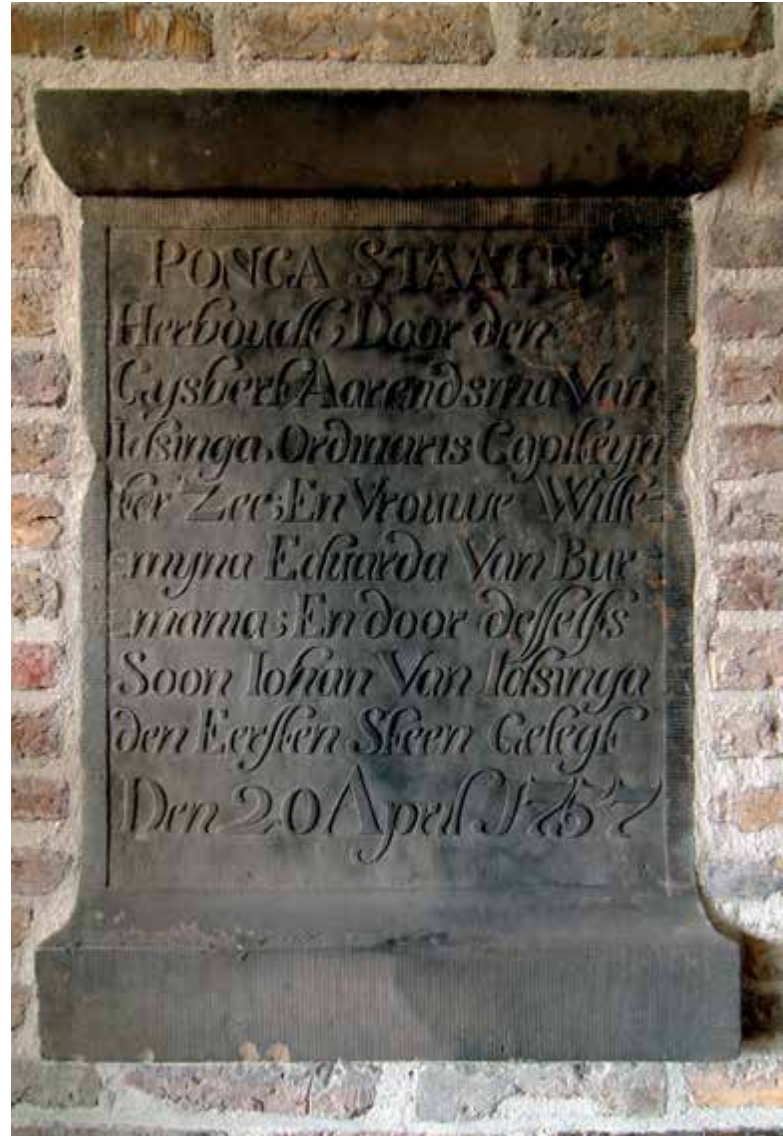 PONGA STAATE:
Herboudt; Door den
Gysbert Aarendsma Van
Idsinga, Ordinaris Capitteyn
ter Zee; En Vrouwe Wille=
=myna Eduarda Van Bur=
=mania; En door desselfs
Soon Iohan Van Idsinga
den Eersten Steen Gelegt
Den 20 April 1757